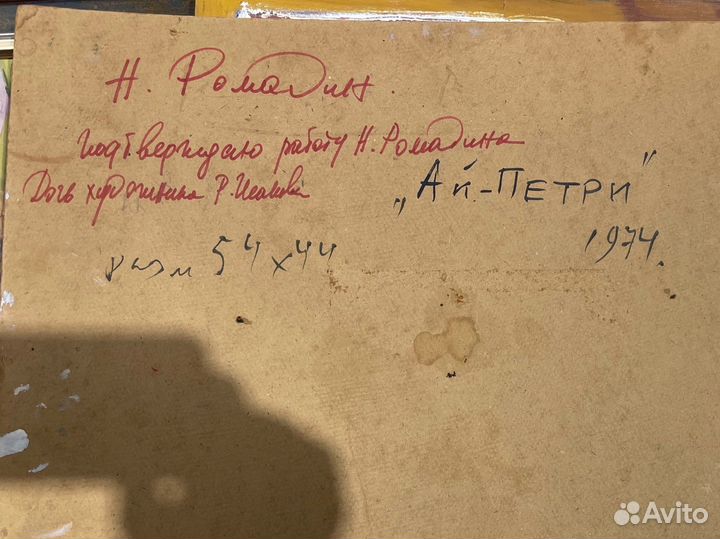 Н. Ромадин.
подтверждаю работу Н. Ромадина
Дочь художника Р. Исакова
„Ай-Петри"
1974.
разм 54 х 44
Avito